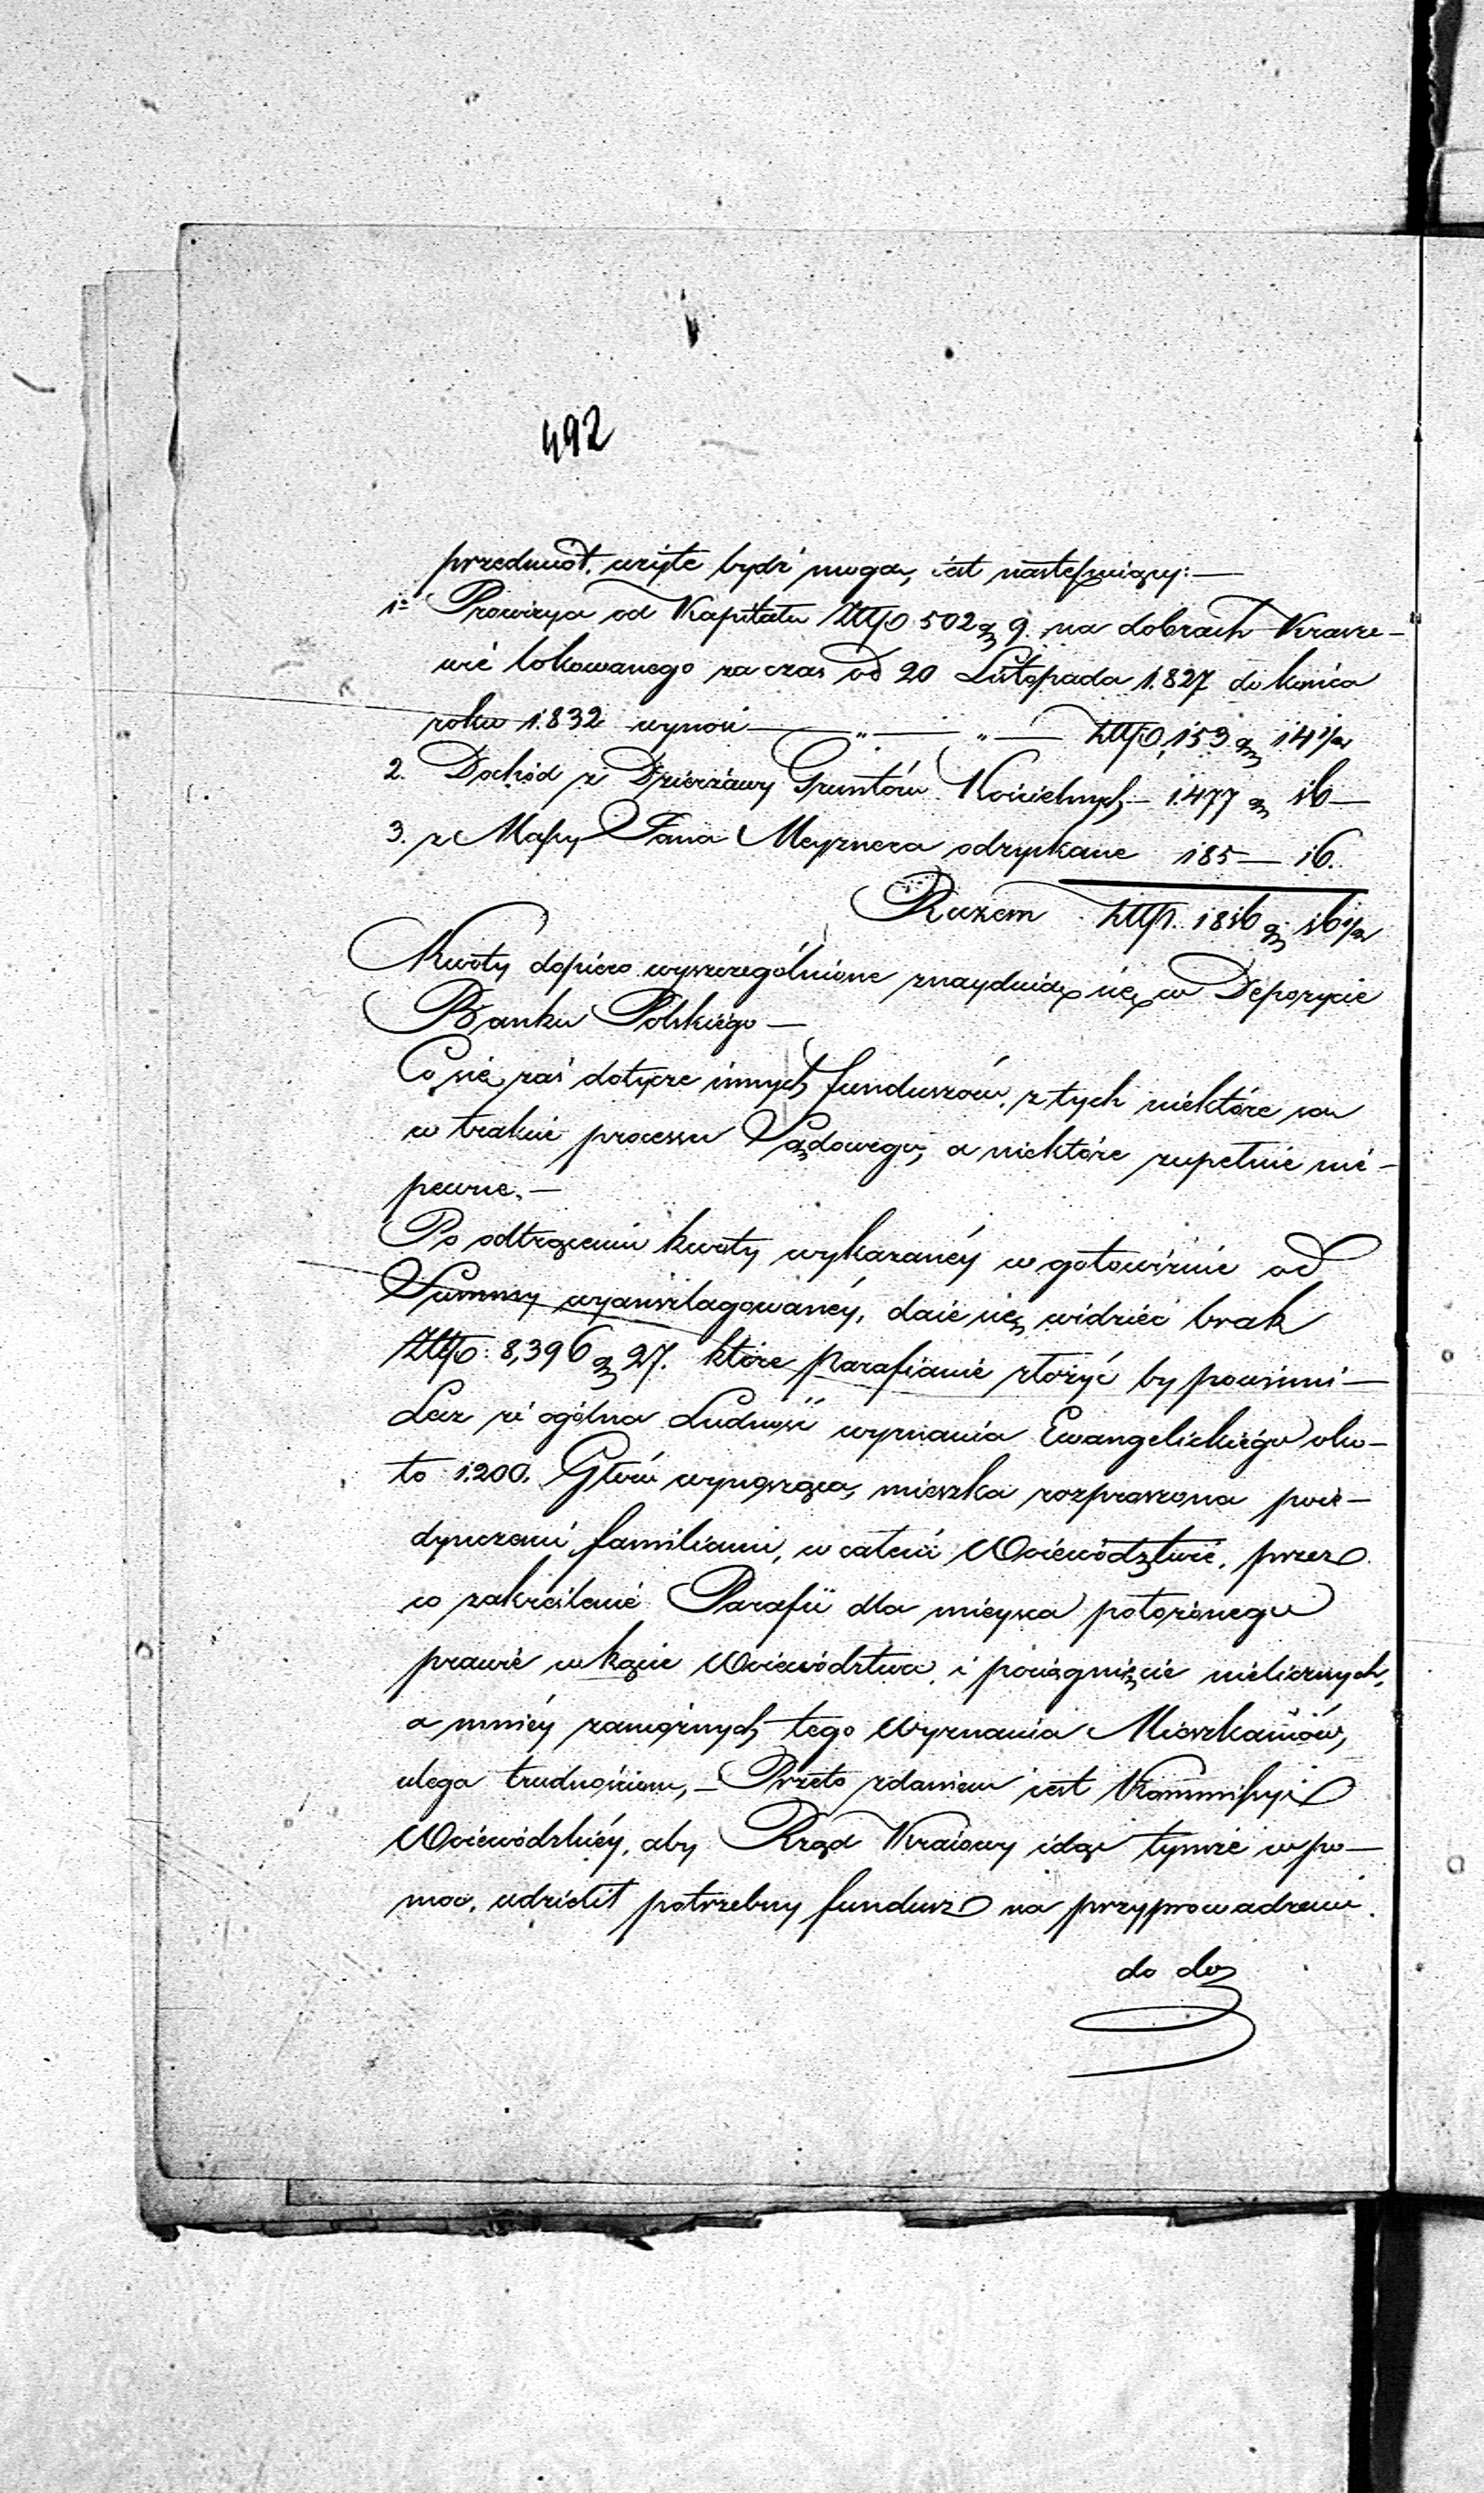 492
przedmiot, użyte bydź mogą, iest następuiący:—
1º Prowizya od Kapitału Złtp 502 gr 9. na dobrach Krasze-
wie lokowanego za czas od 20 Listopada 1827 do końca
roku 1832 wynosi — „ — „ — Złtp. 153 gr 14 1/2
2. Dochód z Dzierżawy Gruntów Kościelnych — 1477 gr 16 —
3. z Massy Pana Meyznera odzyskane 185 — 16.
Razem Złtp. 1816 gr 16 1/2
Kwoty dopiero wyszczególnione znayduią się w Depozycie
Banku Polskiego —
Co się zaś dotycze innych funduszów, z tych niektóre są
w trakcie processu Sądowego, a niektóre zupełnie nie-
pewne. —
Po odtrąceniu kwoty wykazanéy w gotowiźnie od
Summy wyanszlagowanéy, daie się widzieć brak
Złtp: 8,396 gr 27. które Parafianie złożyć by powinni —
Lecz że ogólna Ludność wyznania Ewangelickiégo oko-
ło 1200. Głów wynosząca, mieszka rozproszona poie-
dynczemi familiami, w całem Woiewództwie, przez
co zakreślenie Parafii dla mieysca położonego
prawie w kącie Woiewództwa, i pociągnięcie nielicznych,
a mniéy zamożnych tego Wyznania Mieszkańców,
ulega trudnościom, — Przeto zdaniem iest Kommissyi
Woiewódzkiéy, aby Rząd Kraiowy idąc tymże w po-
moc, udzielił potrzebny fundusz na przyprowadzenie
do do